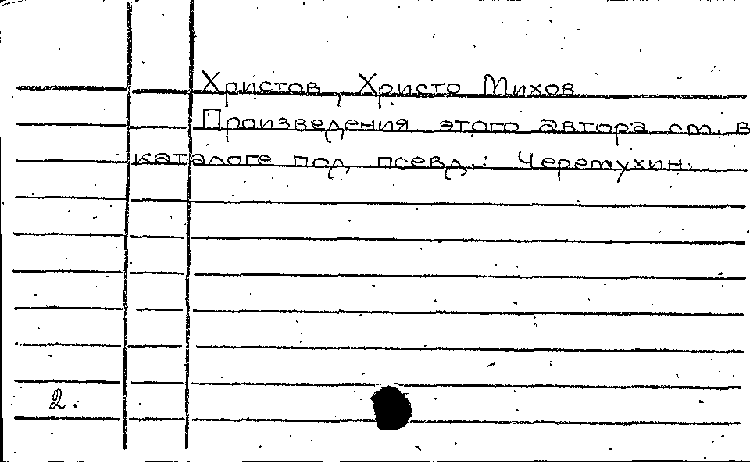 Христов, Христо Михов
Произведения этого автора см. в
каталоге под псевд.: Черемухин.
2.